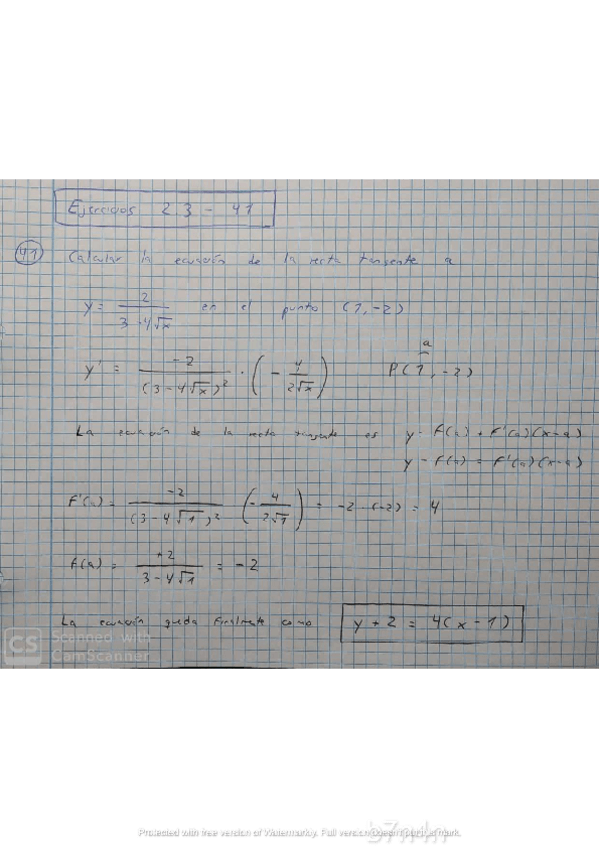 Ejercicios 2.3 - 41
41 Calcular la ecuación de la recta tangente a
y = 2 / (3 - 4√x) en el punto (1, -2)
y' = -2 / (3 - 4√x)² · (- 4 / 2√x) P(1, -2)
a
La ecuación de la recta tangente es y = f(a) + f'(a)(x-a)
y - f(a) = f'(a)(x-a)
f'(a) = -2 / (3 - 4√1)² (- 4 / 2√1) = -2 · (-2) = 4
f(a) = +2 / (3 - 4√1) = -2
La ecuación queda finalmente como y + 2 = 4(x - 1)
CS Scanned with
CamScanner
Protected with free version of Watermarkly. Full version doesn't put this mark.